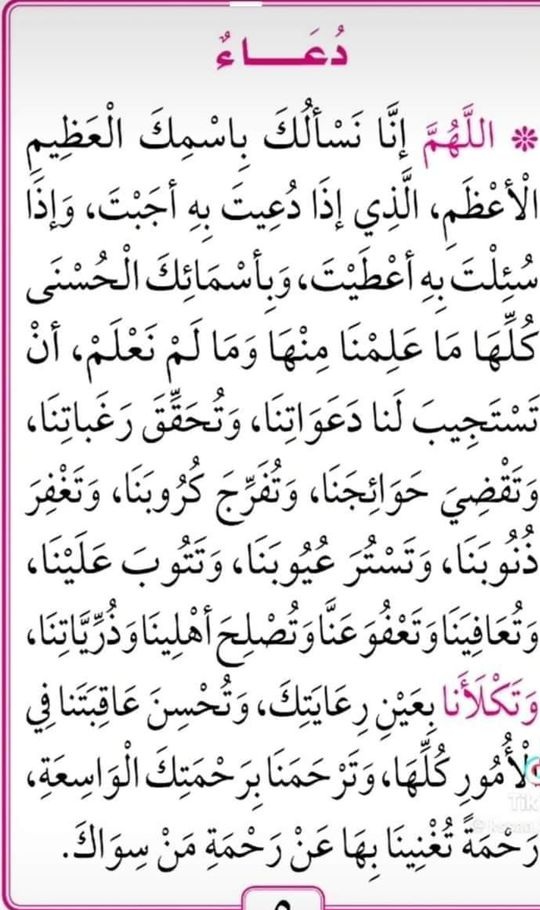 دُعَـــاءٌ
* اللَّهُمَّ إِنَّا نَسْأَلُكَ بِاسْمِكَ الْعَظِيمِ
الْأَعْظَمِ، الَّذِي إِذَا دُعِيتَ بِهِ أَجَبْتَ، وَإِذَا
سُئِلْتَ بِهِ أَعْطَيْتَ، وَبِأَسْمَائِكَ الْحُسْنَى
كُلِّهَا مَا عَلِمْنَا مِنْهَا وَمَا لَمْ نَعْلَمْ، أَنْ
تَسْتَجِيبَ لَنا دَعَوَاتِنَا، وَتُحَقِّقَ رَغَباتِنَا،
وَتَقْضِيَ حَوَائِجَنَا، وَتُفَرِّجَ كُرُوبَنَا، وَتَغْفِرَ
ذُنُوبَنَا، وَتَسْتُرَ عُيُوبَنَا، وَتَتُوبَ عَلَيْنَا،
وَتُعَافِيَنَا وَتَعْفُوَ عَنَّا وَتُصْلِحَ أَهْلِينَا وَذُرِّيَّاتِنَا،
وَتَكْلَأَنا بِعَيْنِ رِعَايَتِكَ، وَتُحْسِنَ عَاقِبَتَنا فِي
الْأُمُورِ كُلِّهَا، وَتَرْحَمَنَا بِرَحْمَتِكَ الْوَاسِعَةِ،
رَحْمَةً تُغْنِينَا بِهَا عَنْ رَحْمَةِ مَنْ سِوَاكَ.